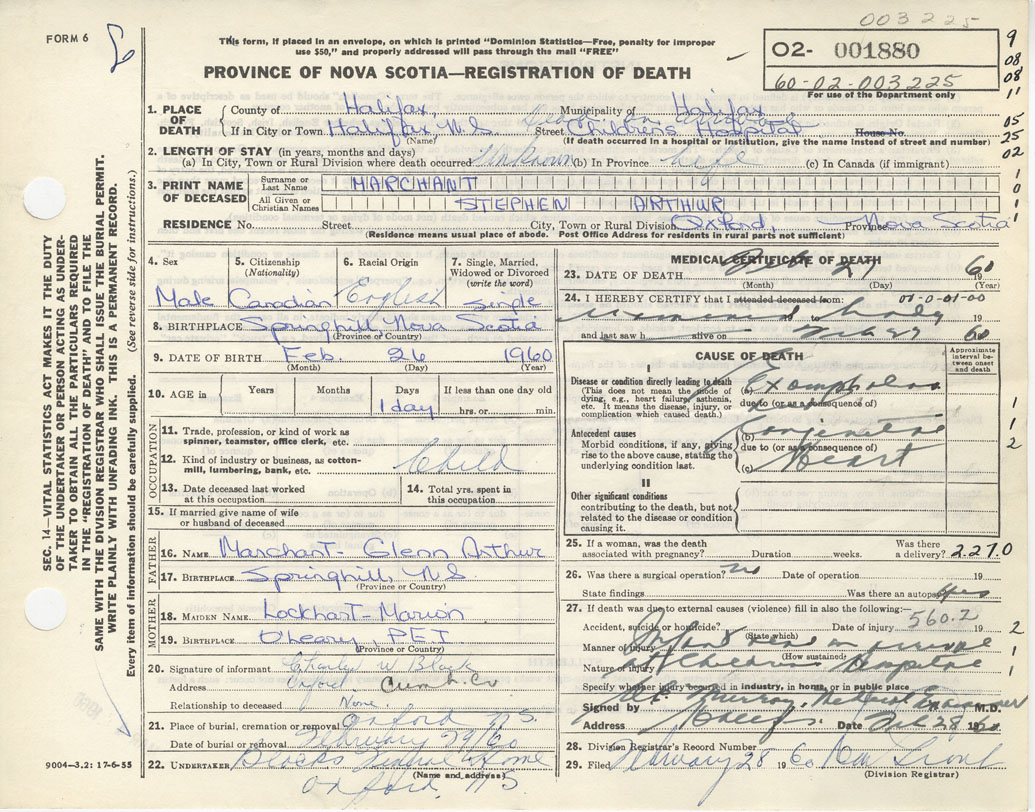 003225
FORM 6
This form, if placed in an envelope, on which is printed "Dominion Statistics—Free, penalty for improper
use $50," and properly addressed will pass through the mail "FREE"
02- 001880
60-02-003225
For use of the Department only
PROVINCE OF NOVA SCOTIA—REGISTRATION OF DEATH
9
08
08
11
05
25
02
1. PLACE OF DEATH
County of Halifax Municipality of Halifax
If in City or Town Halifax, N.S. Street Childrens Hospital House No.
(Name) (If death occurred in a hospital or institution, give the name instead of street and number)
2. LENGTH OF STAY (in years, months and days)
(a) In City, Town or Rural Division where death occurred Unknown (b) In Province Life (c) In Canada (if immigrant)
3. PRINT NAME OF DECEASED
Surname or Last Name MARCHANT
All Given or Christian Names STEPHEN ARTHUR
RESIDENCE No. Street City, Town or Rural Division Oxford, Province Nova Scotia
(Residence means usual place of abode. Post Office Address for residents in rural parts not sufficient)
4. Sex Male
5. Citizenship (Nationality) Canadian
6. Racial Origin English
7. Single, Married, Widowed or Divorced (write the word) Single
8. BIRTHPLACE Springhill, Nova Scotia
(Province or Country)
9. DATE OF BIRTH Feb. 26 1960
(Month) (Day) (Year)
10. AGE in Years Months Days If less than one day old
1 day hrs. or min.
OCCUPATION
11. Trade, profession, or kind of work as
spinner, teamster, office clerk, etc.
12. Kind of industry or business, as cotton-
mill, lumbering, bank, etc. Child
13. Date deceased last worked
at this occupation
14. Total yrs. spent in
this occupation
15. If married give name of wife
or husband of deceased
FATHER
16. NAME Marchant - Glenn Arthur
17. BIRTHPLACE Springhill, N.S.
(Province or Country)
MOTHER
18. MAIDEN NAME Lockhart - Marion
19. BIRTHPLACE O'Leary, PEI
(Province or Country)
20. Signature of informant Charles W Black
Address Oxford Cumb. Co
Relationship to deceased None.
21. Place of burial, cremation or removal Oxford N.S.
Date of burial or removal February 29/60
22. UNDERTAKER Blacks Funeral Home
(Name and address)
Oxford, N.S.
MEDICAL CERTIFICATE OF DEATH
23. DATE OF DEATH Feb 27 1960
(Month) (Day) (Year)
24. I HEREBY CERTIFY that I attended deceased from: 00-0-01-00
19
and last saw h alive on Feb 27 60
CAUSE OF DEATH
Approximate interval between onset and death
I
Disease or condition directly leading to death
(This does not mean the mode of
dying, e.g., heart failure, asthenia,
etc. It means the disease, injury, or
complication which caused death.)
(a) Exomphalos
due to (or as a consequence of)
Antecedent causes
Morbid conditions, if any, giving
rise to the above cause, stating the
underlying condition last.
(b) Congenital
due to (or as a consequence of)
(c) Heart
II
Other significant conditions
contributing to the death, but not
related to the disease or condition
causing it.
25. If a woman, was the death
associated with pregnancy? Duration weeks. Was there
a delivery? 2.27.0
26. Was there a surgical operation? no Date of operation 19
State findings Was there an autopsy yes
27. If death was due to external causes (violence) fill in also the following:—
Accident, suicide or homicide? (State which) Date of injury 560.2
Manner of injury (How sustained)
Nature of injury Childrens Hospital
Specify whether injury occurred in industry, in home, or in public place
Signed by Murray, M.D.
Address Date Feb 28 1960
28. Division Registrar's Record Number
29. Filed February 28 1960
(Division Registrar)
SEC. 14—VITAL STATISTICS ACT MAKES IT THE DUTY
OF THE UNDERTAKER OR PERSON ACTING AS UNDER-
TAKER TO OBTAIN ALL THE PARTICULARS REQUIRED
IN THE "REGISTRATION OF DEATH" AND TO FILE THE
SAME WITH THE DIVISION REGISTRAR WHO SHALL ISSUE THE BURIAL PERMIT.
WRITE PLAINLY WITH UNFADING INK. THIS IS A PERMANENT RECORD.
Every item of information should be carefully supplied. (See reverse side for instructions.)
9004—3.2: 17-6-55